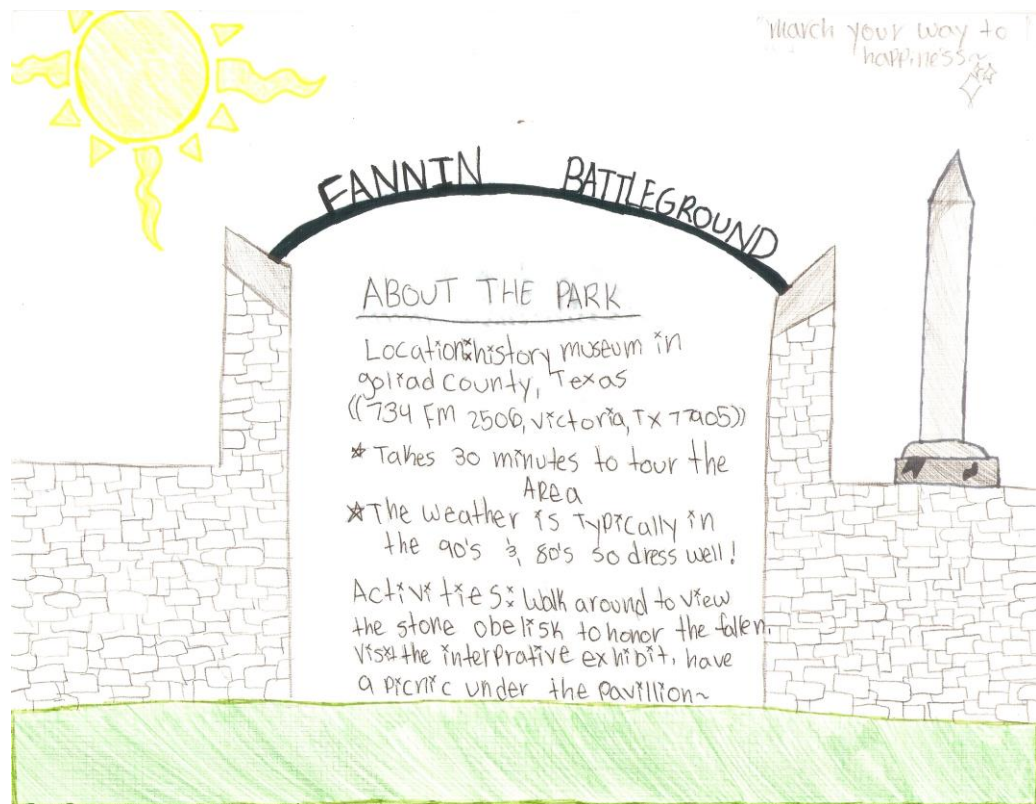 march your way to
happiness~
FANNIN BATTLEGROUND
ABOUT THE PARK
Location: history museum in
goliad county, Texas
((734 FM 2506, victoria, TX 77905))
* Takes 30 minutes to tour the
AREA
* The weather is typically in
the 90's & 80's so dress well!
Activities: Walk around to view
the stone obelisk to honor the fallen.
Visit the interprative exhibit, have
a picnic under the pavillion~